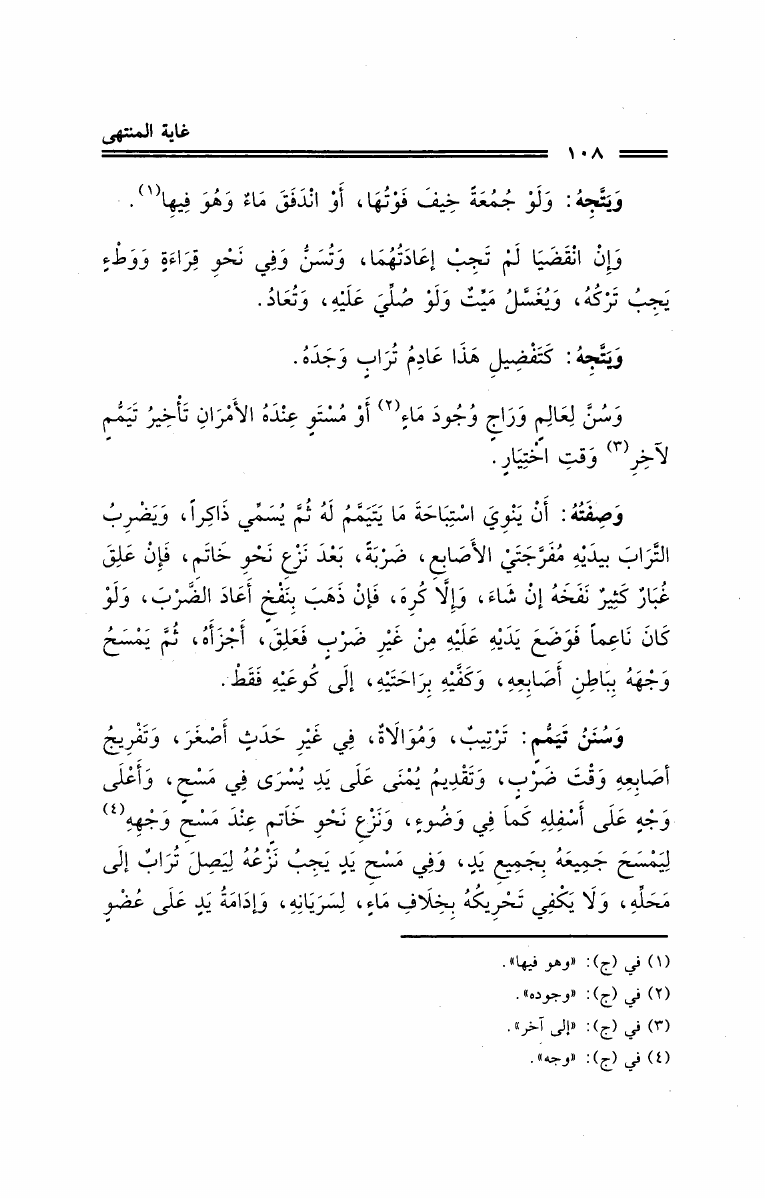 غاية المنتهى
١٠٨
وَيَتَّجِهُ: وَلَوْ جُمُعَةً خِيفَ فَوْتُهَا، أَوْ انْدَفَقَ مَاءٌ وَهُوَ فِيهِا(١).
وَإِنْ انْقَضَيَا لَمْ تَجِبْ إعَادَتُهُمَا، وَتُسَنُّ وَفِي نَحْوِ قِرَاءَةٍ وَوَطْءٍ
يَجِبُ تَرْكُهُ، وَيُغَسَّلُ مَيِّتٌ وَلَوْ صُلِّيَ عَلَيْهِ، وَتُعَادُ.
وَيَتَّجِهُ: كَتَفْضِيلِ هَذَا عَادِمُ تُرَابٍ وَجَدَهُ.
وَسُنَّ لِعَالِمٍ وَرَاجٍ وُجُودَ مَاءٍ(٢) أَوْ مُسْتَوٍ عِنْدَهُ الأَمْرَانِ تَأْخِيرُ تَيَمُّمٍ
لآخِرِ(٣) وَقتِ اخْتِيَارٍ.
وَصِفَتُهُ: أَنْ يَنْوِيَ اسْتِبَاحَةَ مَا يَتَيَمَّمُ لَهُ ثُمَّ يُسَمِّي ذَاكِراً، وَيَضْرِبُ
التَّرَابَ بِيدَيْهِ مُفَرَّجَتَيْ الأَصَابِعِ، ضَرْبَةً، بَعْدَ نَزْعِ نَحْوِ خَاتَمٍ، فَإِنْ عَلِقَ
غُبَارٌ كَثِيرٌ نَفَخَهُ إنْ شَاءَ، وَإِلَّا كُرِهَ، فَإنْ ذَهَبَ بِنَفْخٍ أَعَادَ الضَّرْبَ، وَلَوْ
كَانَ نَاعِماً فَوَضَعَ يَدَيْهِ عَلَيْهِ مِنْ غَيْرِ ضَرْبٍ فَعَلِقَ، أَجْزَأَهُ، ثُمَّ يَمْسَحُ
وَجْهَهُ بِبَاطِنِ أَصَابِعِهِ، وَكَفَّيْهِ بِرَاحَتَيْهِ، إلَى كُوعَيْهِ فَقَطْ.
وَسُنَنُ تَيَمُّمٍ: تَرْتِيبٌ، وَمُوَالَاةٌ، فِي غَيْرِ حَدَثٍ أَصْغَرَ، وَتَفْرِيجُ
أصَابِعِهِ وَقْتَ ضَرْبٍ، وَتَقْدِيمُ يُمْنَى عَلَى يَدٍ يُسْرَى فِي مَسْحٍ، وَأَعْلَى
وَجْهٍ عَلَى أَسْفلِهِ كَمَا فِي وَضُوءٍ، وَنَزْعِ نَحْوِ خَاتمٍ عِنْدَ مَسْحِ وَجْهِهِ(٤)
لِيَمْسَحَ جَمِيعَهُ بِجَمِيعِ يَدٍ، وَفِي مَسْحِ يَدٍ يَجِبُ نَزْعُهُ لِيَصِلَ تُرَابٌ إلَى
مَحَلِّهِ، وَلَا يَكْفِي تَحْرِيكُهُ بِخِلَافِ مَاءٍ، لِسَرَيَانِهِ، وَإدَامَةُ يَدٍ عَلَى عُضْوٍ
(١) في (ج): «وهو فيها».
(٢) في (ج): «وجوده».
(٣) في (ج): «إلى آخر».
(٤) في (ج): «وجه».